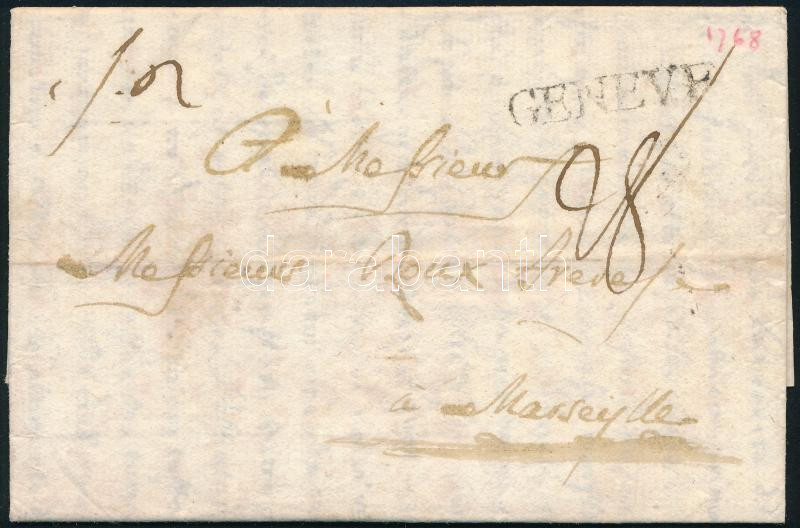 1768
GENEVE
A Messieurs
28
Messieurs Roux freres
à Marseylle
darabanth.com